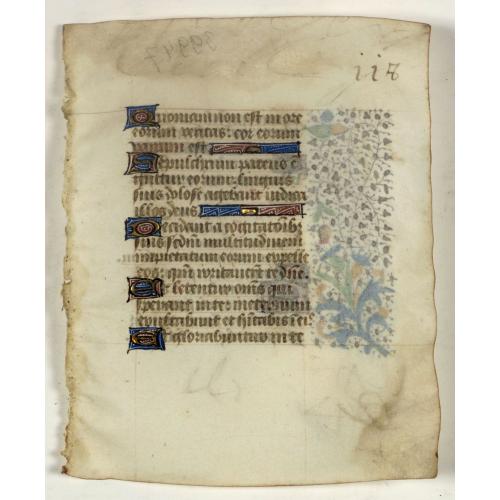 118
Quoniam non est in ore
eorum veritas: cor eorum
vanum est
Sepulchrum patens e
guttur eorum: linguis
suis dolose agebant iudica
illos deus
Decidant a cogitationib
suis secundum multitudinem
impietatum eorum expelle
eos: quoniam irritaverunt te domine
Et letentur omnes qui
sperant in te in eternum
exultabunt et habitabis i eis
Et gloriabuntur in te